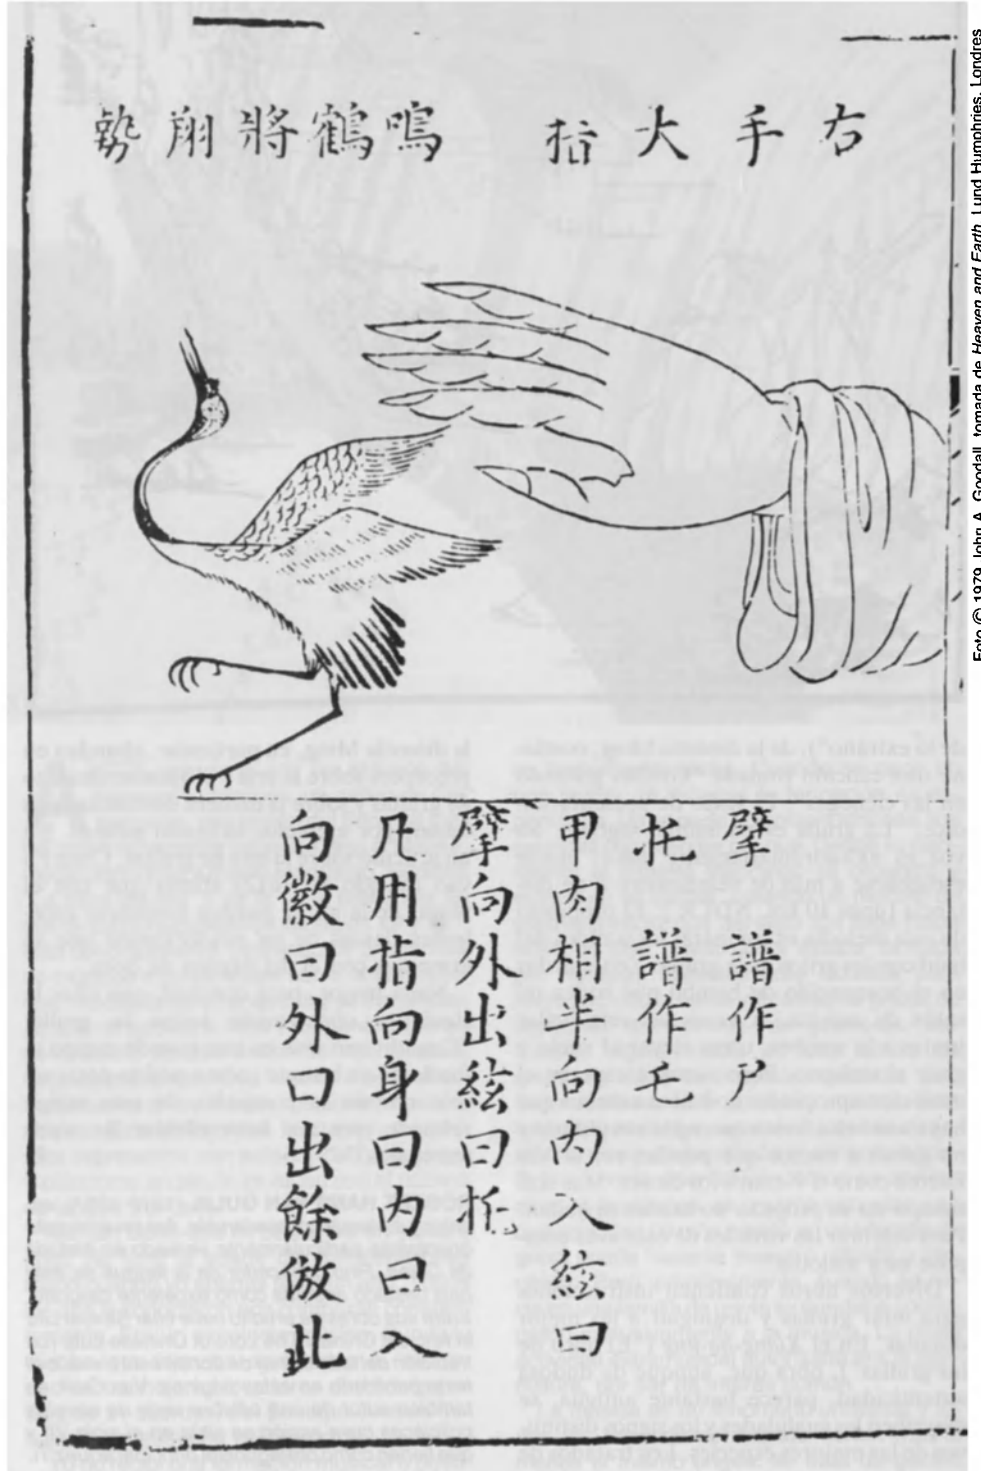 右手大指
鳴鶴將翔勢
擘 譜作尸
托 譜作乇
甲肉相半向内入絃曰
擘向外出絃曰托。
凡用指向身曰内曰入
向徽曰外曰出餘倣此
Foto © 1979 John A. Goodall, tomada de Heaven and Earth, Lund Humphries, Londres